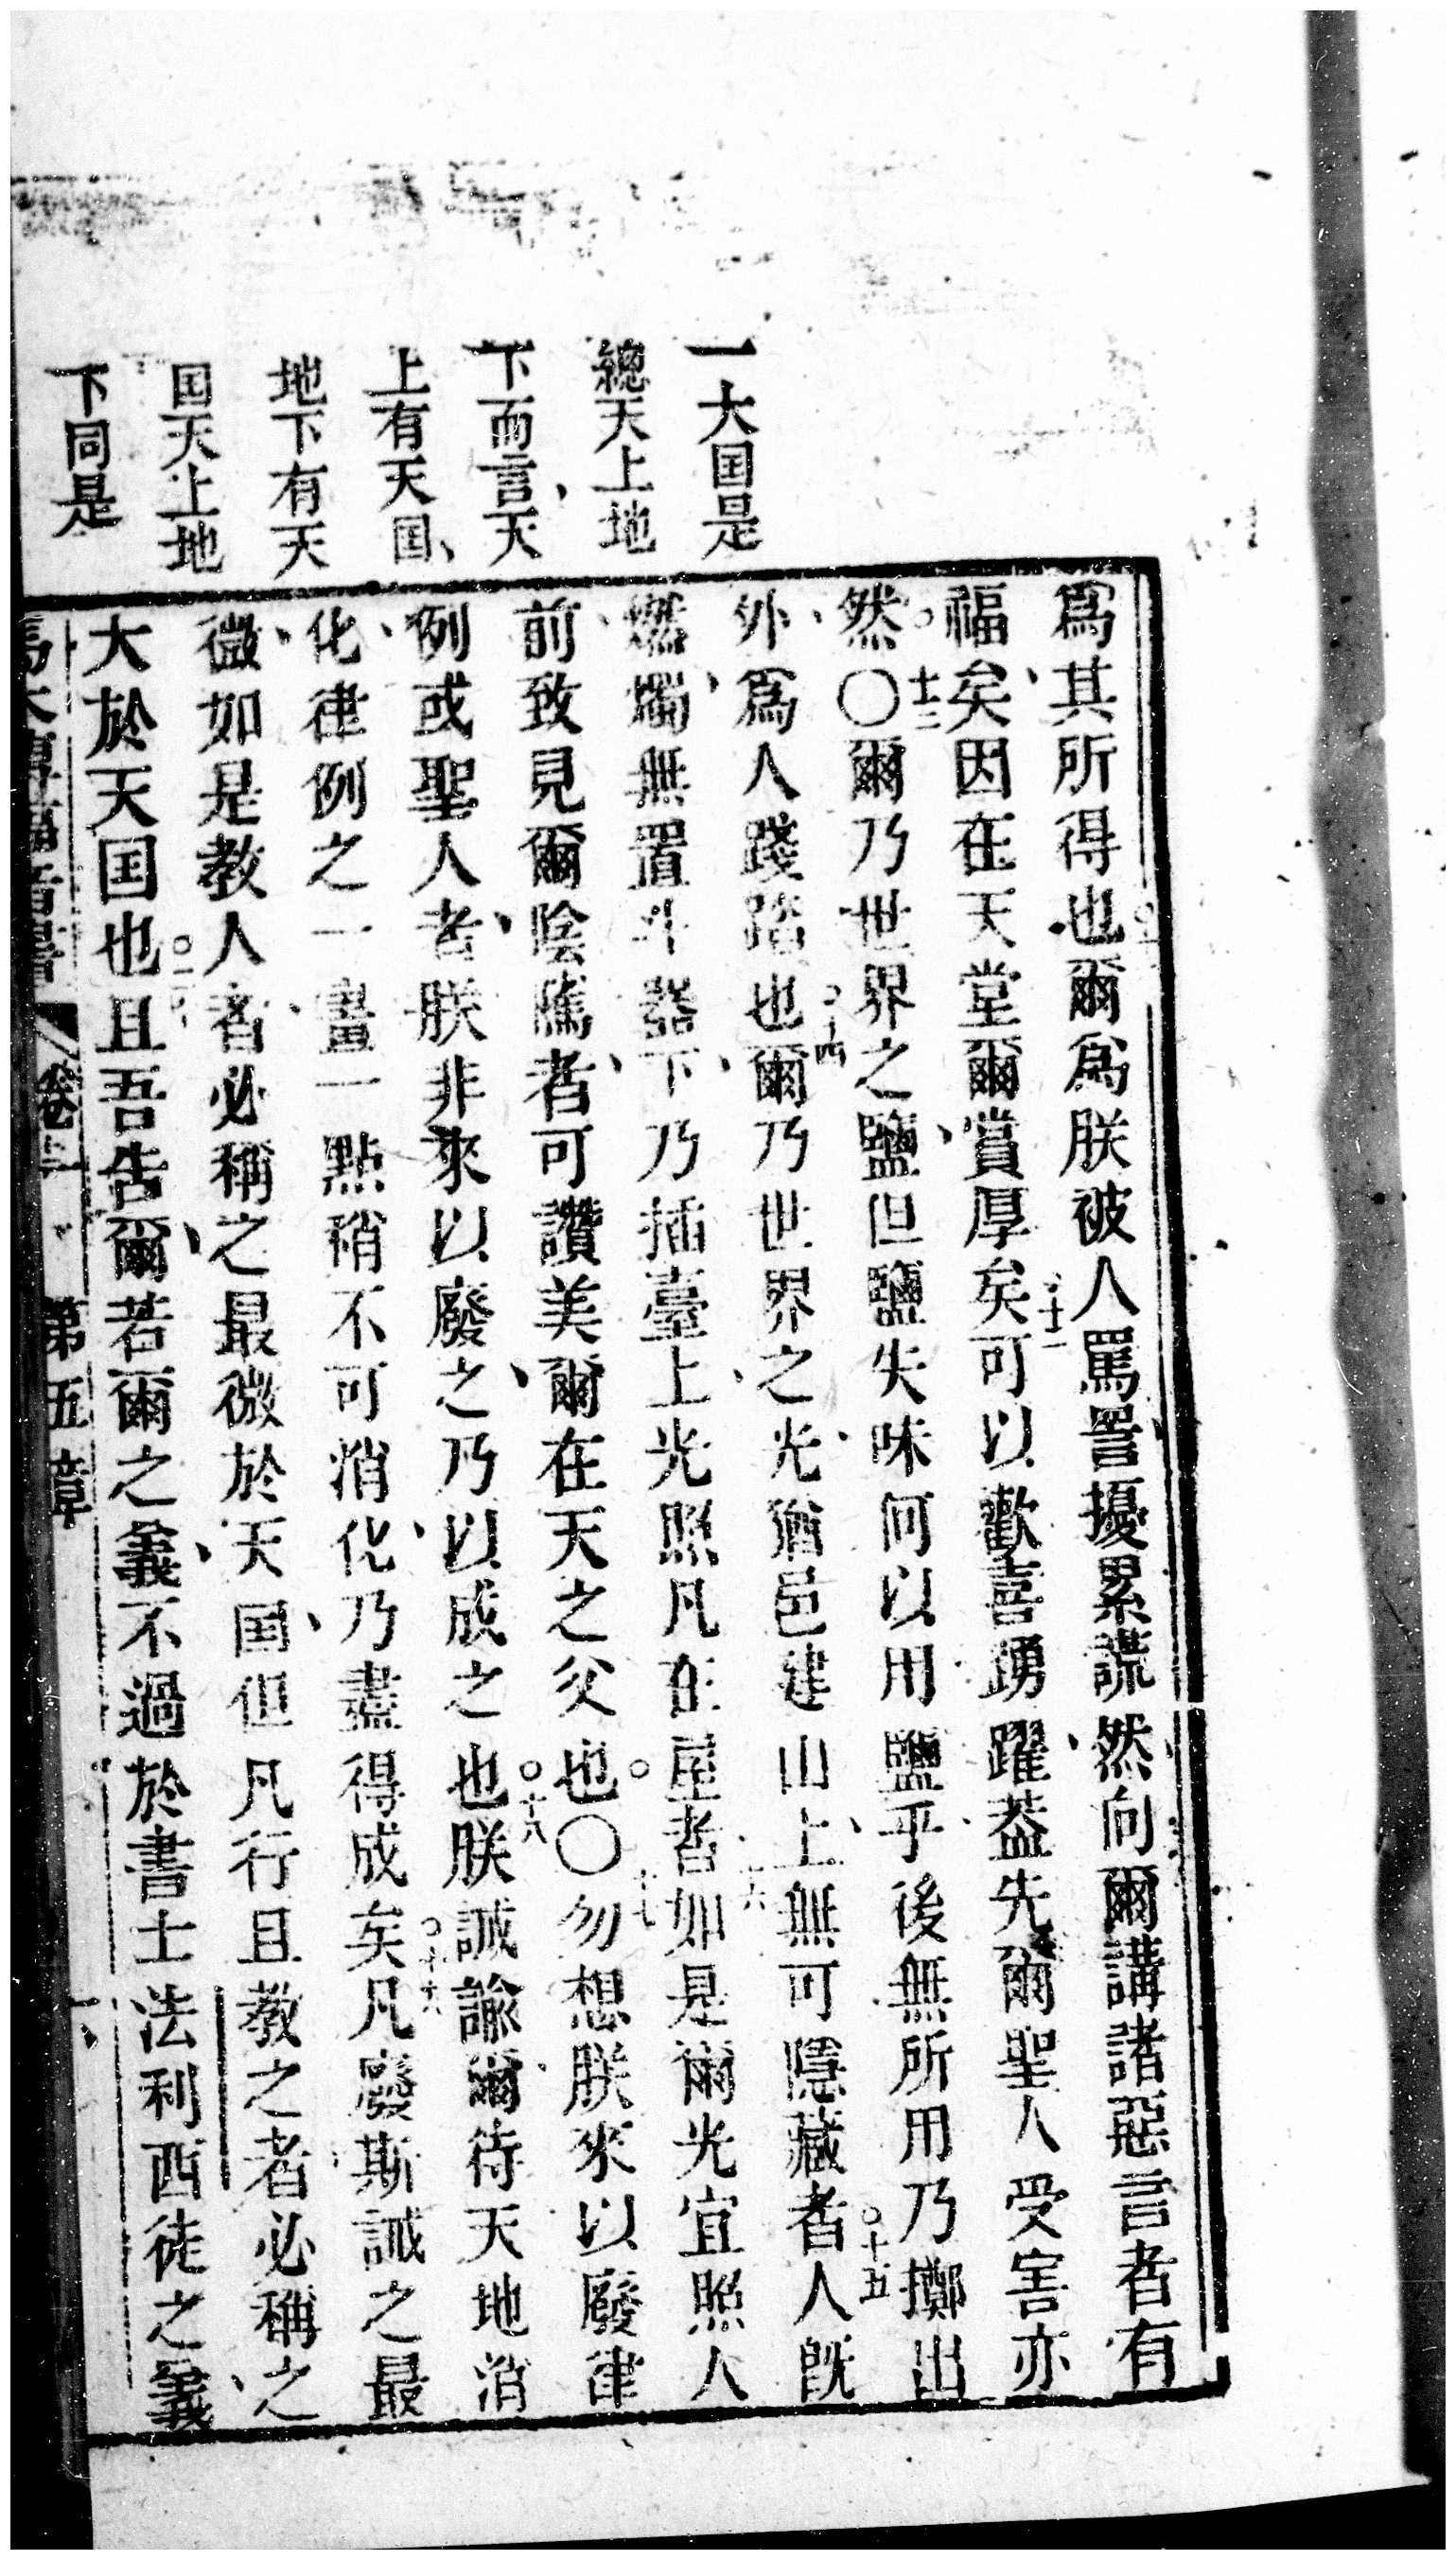 一大国是
總天上地
下而言、天
上有天国、
地下有天
国天上地
下同是
爲其所得也爾爲朕被人罵詈擾累謊然、向爾講諸惡言者有
福矣、因在天堂爾賞厚矣○十二可以歡喜踴躍、葢先爾聖人受害亦
然。○十三爾乃世界之鹽、但鹽失味何以用鹽乎、後無所用乃擲出
外、爲人踐踏也○十四爾乃世界之光、猶邑建山上、無可隱藏者○十五人旣
燃燭、無置斗器下、乃插臺上、光照凡在屋者、十六如是爾光宜照人
前、致見爾陰隲者、可讚美爾在天之父也。○十七勿想朕來以廢律
例或聖人者、朕非來以廢之、乃以成之也○十八朕誠諭爾、待天地消
化、律例之一畫一點稍不可消化、乃盡得成矣○十九凡廢斯誡之最
微、如是教人者、必稱之最微於天国、但凡行且教之者、必稱之
大於天国也○二十且吾告爾、若爾之義、不過於書士法利西徒之義、
卷 第五章